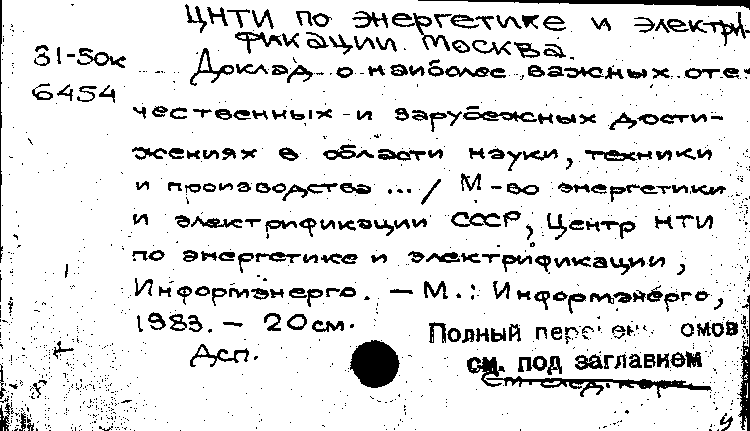 ЦНТИ по энергетике и электри-
фикации. Москва.
31-50к
Доклад о наиболее важных оте-
6454
чественных и зарубежных дости-
жениях в области науки, техники
и производства ... / М-во энергетики
и электрификации СССР, Центр НТИ
по энергетике и электрификации,
Информэнерго. — М.: Информэнерго,
1983. — 20 см.
Полный омов
Дсп.
см. под заглавием
См. след. карт.